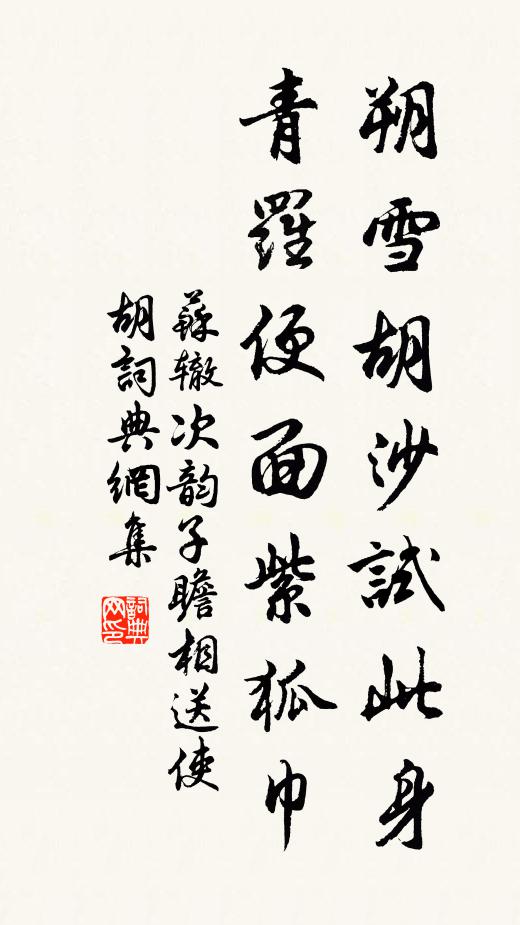 朔雪胡沙試此身
青羅便面紫狐巾
蘇辙次韵子瞻相送使
胡詞典網集
詞典
网印